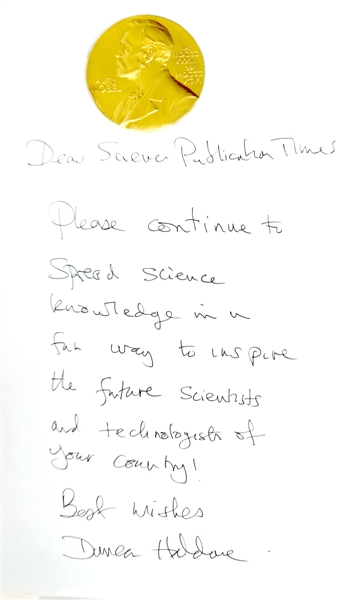 Dear Science Publication Times
Please continue to
Spread science
knowledge in a
fun way to inspire
the future scientists
and technologists of
your country!
Best wishes
Duncan Haldane